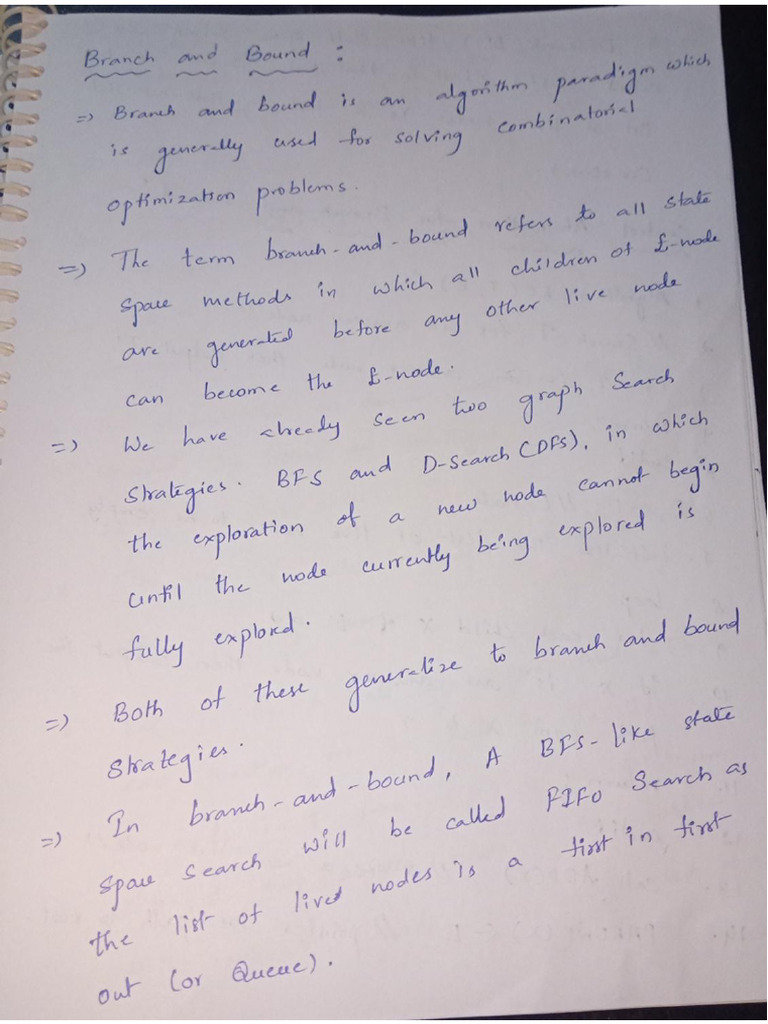 Branch and Bound :
=> Branch and bound is an algorithm paradigm which
is generally used for solving combinatorial
optimization problems.
=> The term branch-and-bound refers to all state
space methods in which all children of £-node
are generated before any other live node
can become the £-node.
=> We have already seen two graph Search
Strategies. BFS and D-Search (DFS), in which
the exploration of a new node cannot begin
until the node currently being explored is
fully explored.
=> Both of these generalize to branch and bound
strategies.
=> In branch-and-bound, A BFS-like state
space search will be called FIFO Search as
the list of lived nodes is a first in first
out (or Queue).